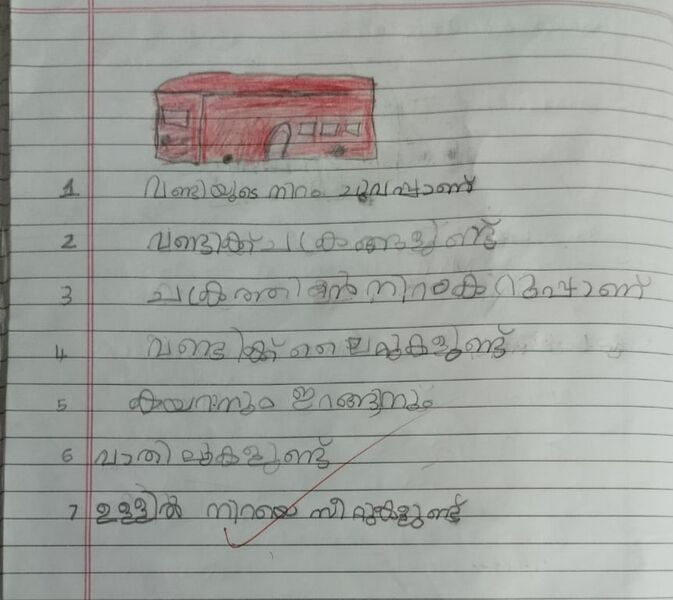 1 വണ്ടിയുടെ നിറം ചുവപ്പാണ്
2 വണ്ടിക്ക് ചക്രങ്ങളുണ്ട്
3 ചക്രത്തിൻ നിറം കറുപ്പാണ്
4 വണ്ടിക്ക് ലൈറ്റുകളുണ്ട്
5 കയറാനും ഇറങ്ങാനും
6 വാതിലുകളുണ്ട്
7 ഉള്ളിൽ നിറയെ സീറ്റുകളുണ്ട്